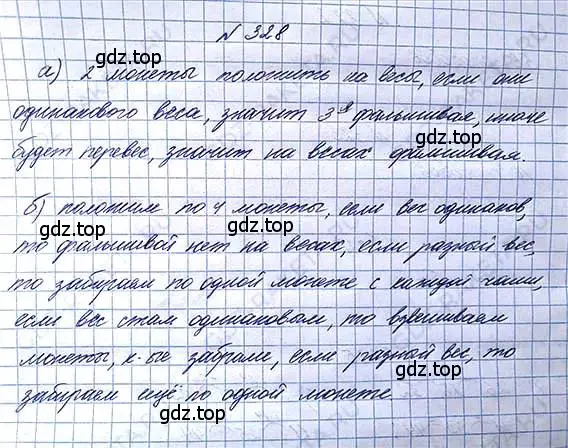 N 328
а) 2 монеты положить на весы, если они
одинакового веса, значит 3я фальшивая, иначе
будет перевес, значит на весах фальшивая.
б) положим по 4 монеты, если вес одинаков,
то фальшивой нет на весах, если разной вес,
то забираем по одной монете с каждой чаши,
если вес стал одинаковым, то взвешиваем
монеты, к-ые забрали, если разной вес, то
забираем ещё по одной монете
gdz.top
gdz.top
gdz.top
gdz.top
gdz.top
gdz.top
gdz.top
gdz.top
gdz.top